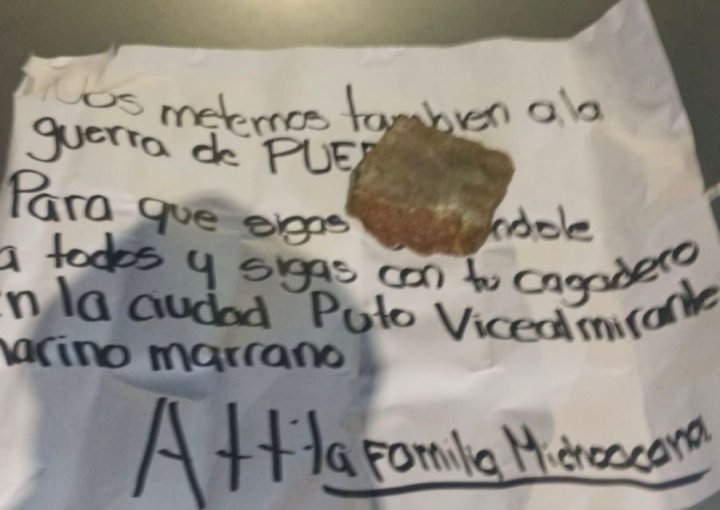 Nos metemos tambien a la
guerra de PUE
Para que sigas ndole
a todos y sigas con tu cagadero
n la ciudad Puto Vicealmirante
marino marrano
Att: la Familia Michoacana